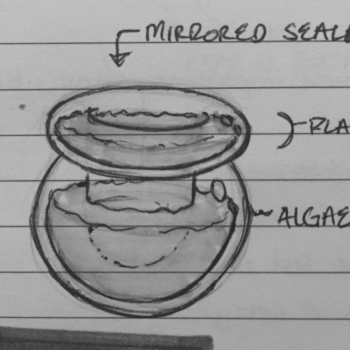 MIRRORED SEAL
PLA
ALGAE